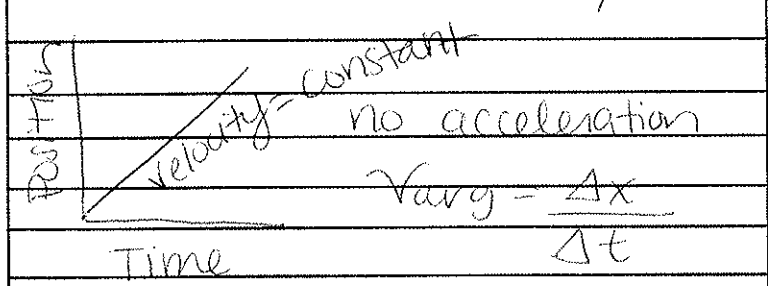 Position
velocity = constant
no acceleration
Vavg = Δx
Δt
Time